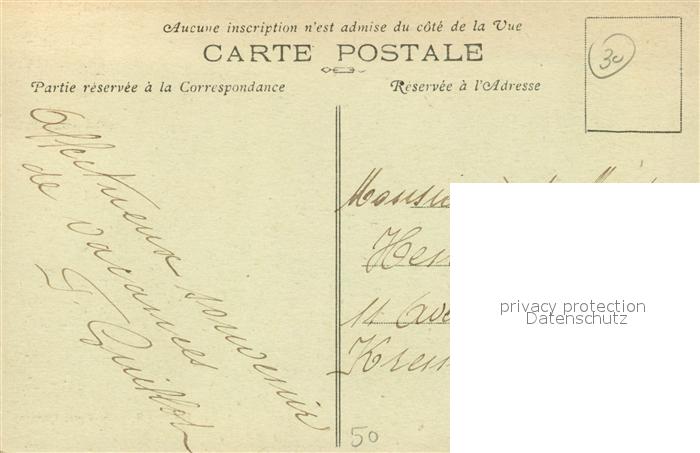 Aucune inscription n'est admise du côté de la Vue
CARTE POSTALE
Partie réservée à la Correspondance
Réservée à l'Adresse
30
Affectueux souvenir
de vacances
J. Guillot
Monsieur
11 Ave
50
privacy protection
Datenschutz